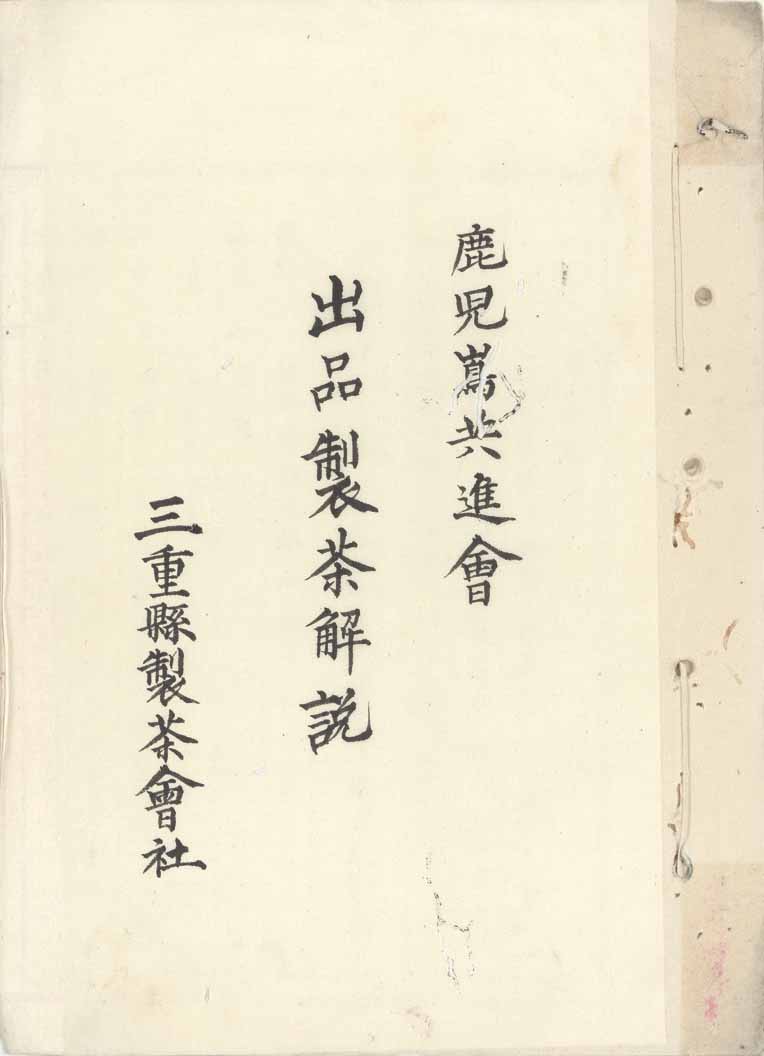 鹿児嶌共進會
出品製茶解説
三重縣製茶會社